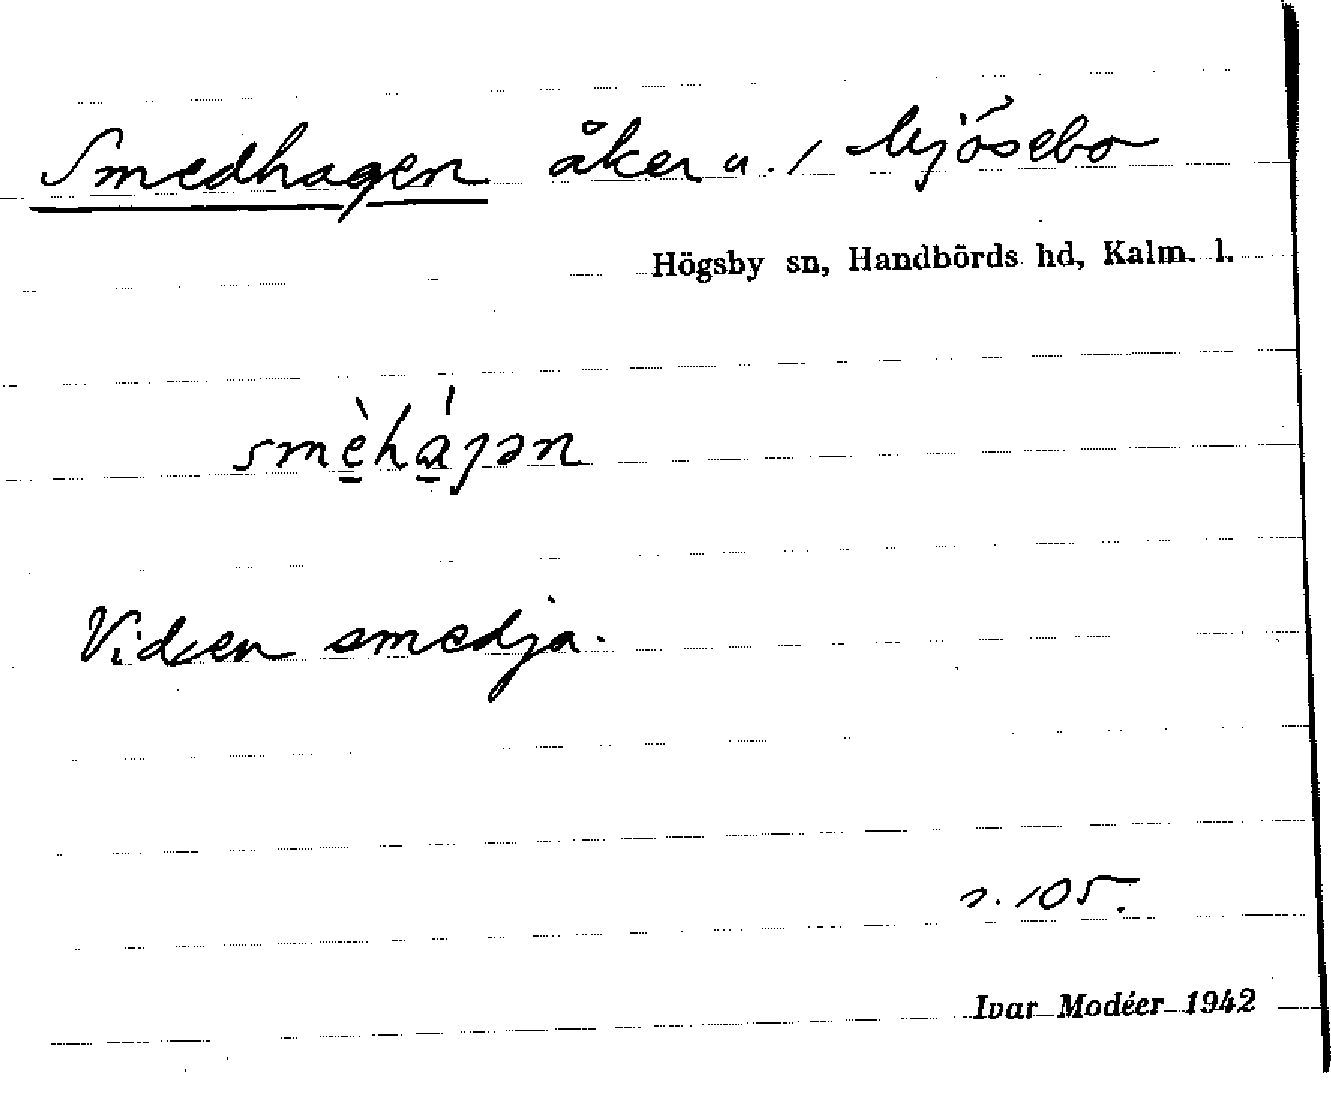 Smedhagen åker u. / Mjösebo
Högsby sn, Handbörds hd, Kalm. l.
smèhájən
Vid en smedja.
s. 105.
Ivar Modéer 1942